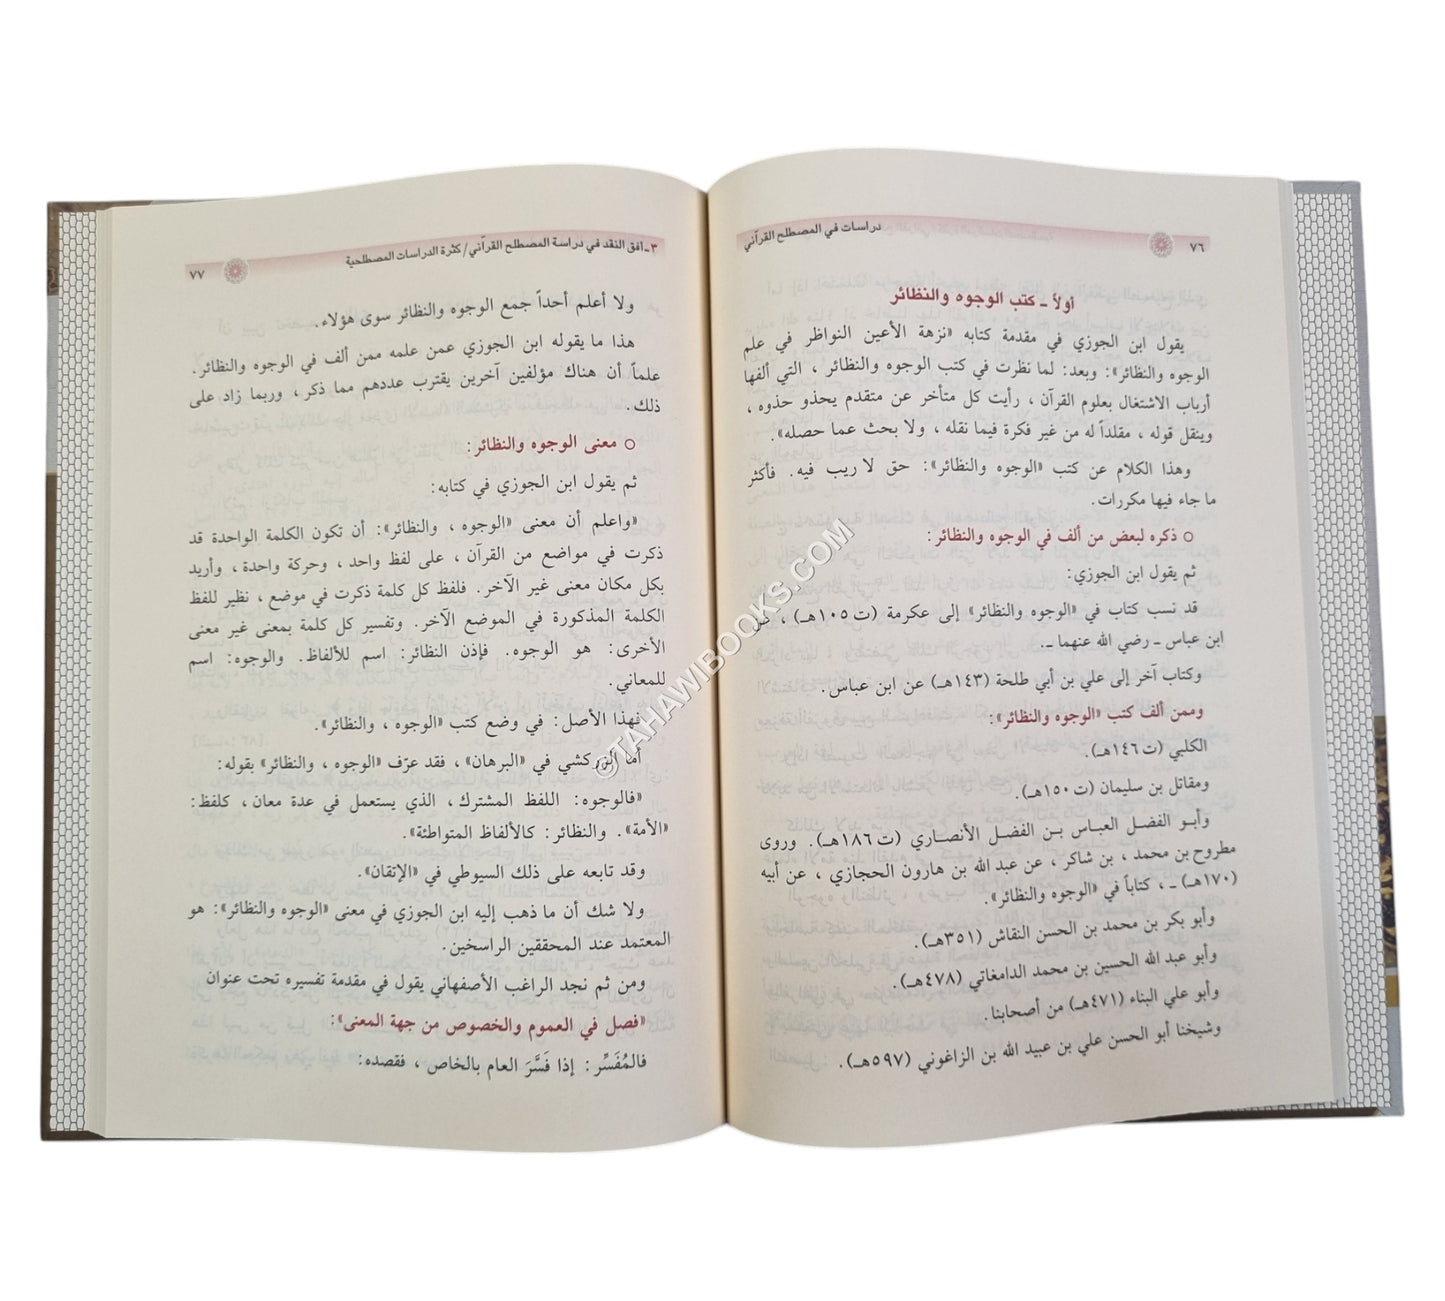 ٧٦
دراسات في المصطلح القرآني
أولاً - كتب الوجوه والنظائر
يقول ابن الجوزي في مقدمة كتابه «نزهة الأعين النواظر في علم
الوجوه والنظائر»: وبعد: لما نظرت في كتب الوجوه والنظائر ، التي ألفها
أرباب الاشتغال بعلوم القرآن ، رأيت كل متأخر عن متقدم يحذو حذوه ،
وينقل قوله ، مقلداً له من غير فكرة فيما نقله ، ولا بحث عما حصله».
وهذا الكلام عن كتب «الوجوه والنظائر»: حق لا ريب فيه. فأكثر
ما جاء فيها مكررات.
○ ذكره لبعض من ألف في الوجوه والنظائر:
ثم يقول ابن الجوزي:
قد نسب كتاب في «الوجوه والنظائر» إلى عكرمة (ت ١٠٥هـ) ، عن
ابن عباس - رضي الله عنهما -.
وكتاب آخر إلى علي بن أبي طلحة (١٤٣هـ) عن ابن عباس.
وممن ألف كتب «الوجوه والنظائر»:
الكلبي (ت ١٤٦هـ).
ومقاتل بن سليمان (ت ١٥٠هـ).
وأبو الفضل العباس بن الفضل الأنصاري (ت ١٨٦هـ). وروى
مطروح بن محمد ، بن شاكر ، عن عبد الله بن هارون الحجازي ، عن أبيه
(١٧٠هـ) - ، كتاباً في «الوجوه والنظائر».
وأبو بكر بن محمد بن الحسن النقاش (٣٥١هـ).
وأبو عبد الله الحسين بن محمد الدامغاتي (٤٧٨هـ).
وأبو علي البناء (٤٧١هـ) من أصحابنا.
وشيخنا أبو الحسن علي بن عبيد الله بن الزاغوني (٥٩٧هـ).
٣- أفق النقد في دراسة المصطلح القرآني / كثرة الدراسات المصطلحية
٧٧
ولا أعلم أحداً جمع الوجوه والنظائر سوى هؤلاء.
هذا ما يقوله ابن الجوزي عمن علمه ممن ألف في الوجوه والنظائر.
علماً أن هناك مؤلفين آخرين يقترب عددهم مما ذكر ، وربما زاد على
ذلك.
○ معنى الوجوه والنظائر:
ثم يقول ابن الجوزي في كتابه:
«واعلم أن معنى «الوجوه ، والنظائر»: أن تكون الكلمة الواحدة قد
ذكرت في مواضع من القرآن ، على لفظ واحد ، وحركة واحدة ، وأريد
بكل مكان معنى غير الآخر. فلفظ كل كلمة ذكرت في موضع ، نظير للفظ
الكلمة المذكورة في الموضع الآخر. وتفسير كل كلمة بمعنى غير معنى
الأخرى: هو الوجوه. فإذن النظائر: اسم للألفاظ. والوجوه: اسم
للمعاني.
فهذا الأصل: في وضع كتب «الوجوه ، والنظائر».
أما الزركشي في «البرهان» ، فقد عرّف «الوجوه ، والنظائر» بقوله:
«فالوجوه: اللفظ المشترك، الذي يستعمل في عدة معان، كلفظ:
«الأمة». والنظائر: كالألفاظ المتواطئة».
وقد تابعه على ذلك السيوطي في «الإتقان».
ولا شك أن ما ذهب إليه ابن الجوزي في معنى «الوجوه والنظائر»: هو
المعتمد عند المحققين الراسخين.
ومن ثم نجد الراغب الأصفهاني يقول في مقدمة تفسيره تحت عنوان
«فصل في العموم والخصوص من جهة المعنى»:
فالمُفَسِّر: إذا فَسَّرَ العام بالخاص ، فقصده:
© TAHAWIBOOKS.COM